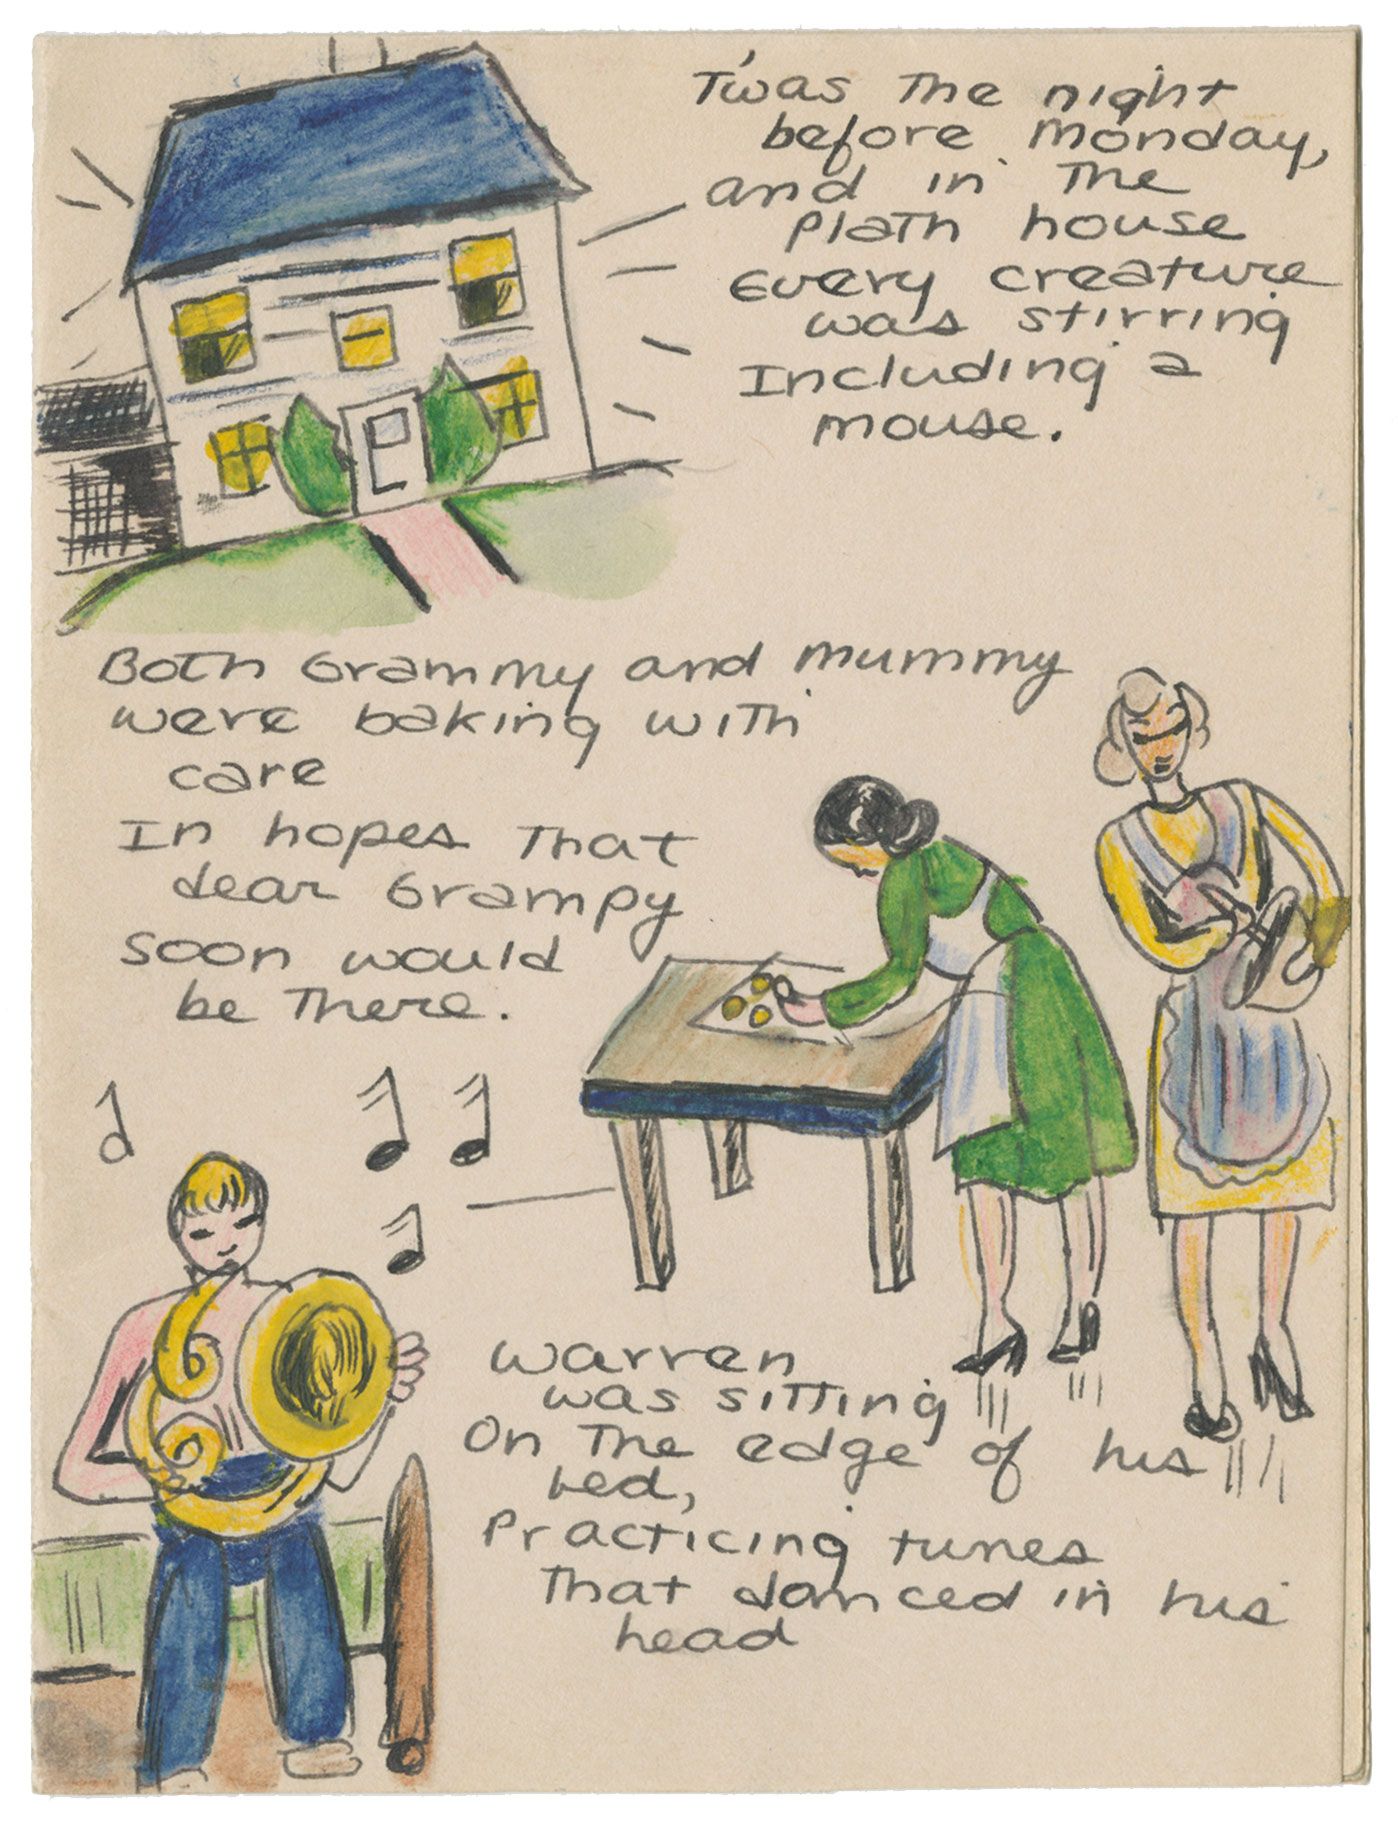 T'was the night
before Monday,
and in the
Plath house
Every creature
was stirring
Including a
mouse.
Both Grammy and Mummy
were baking with
care
In hopes that
dear Grampy
soon would
be there.
Warren
was sitting
On the edge of his
bed,
Practicing tunes
that danced in his
head